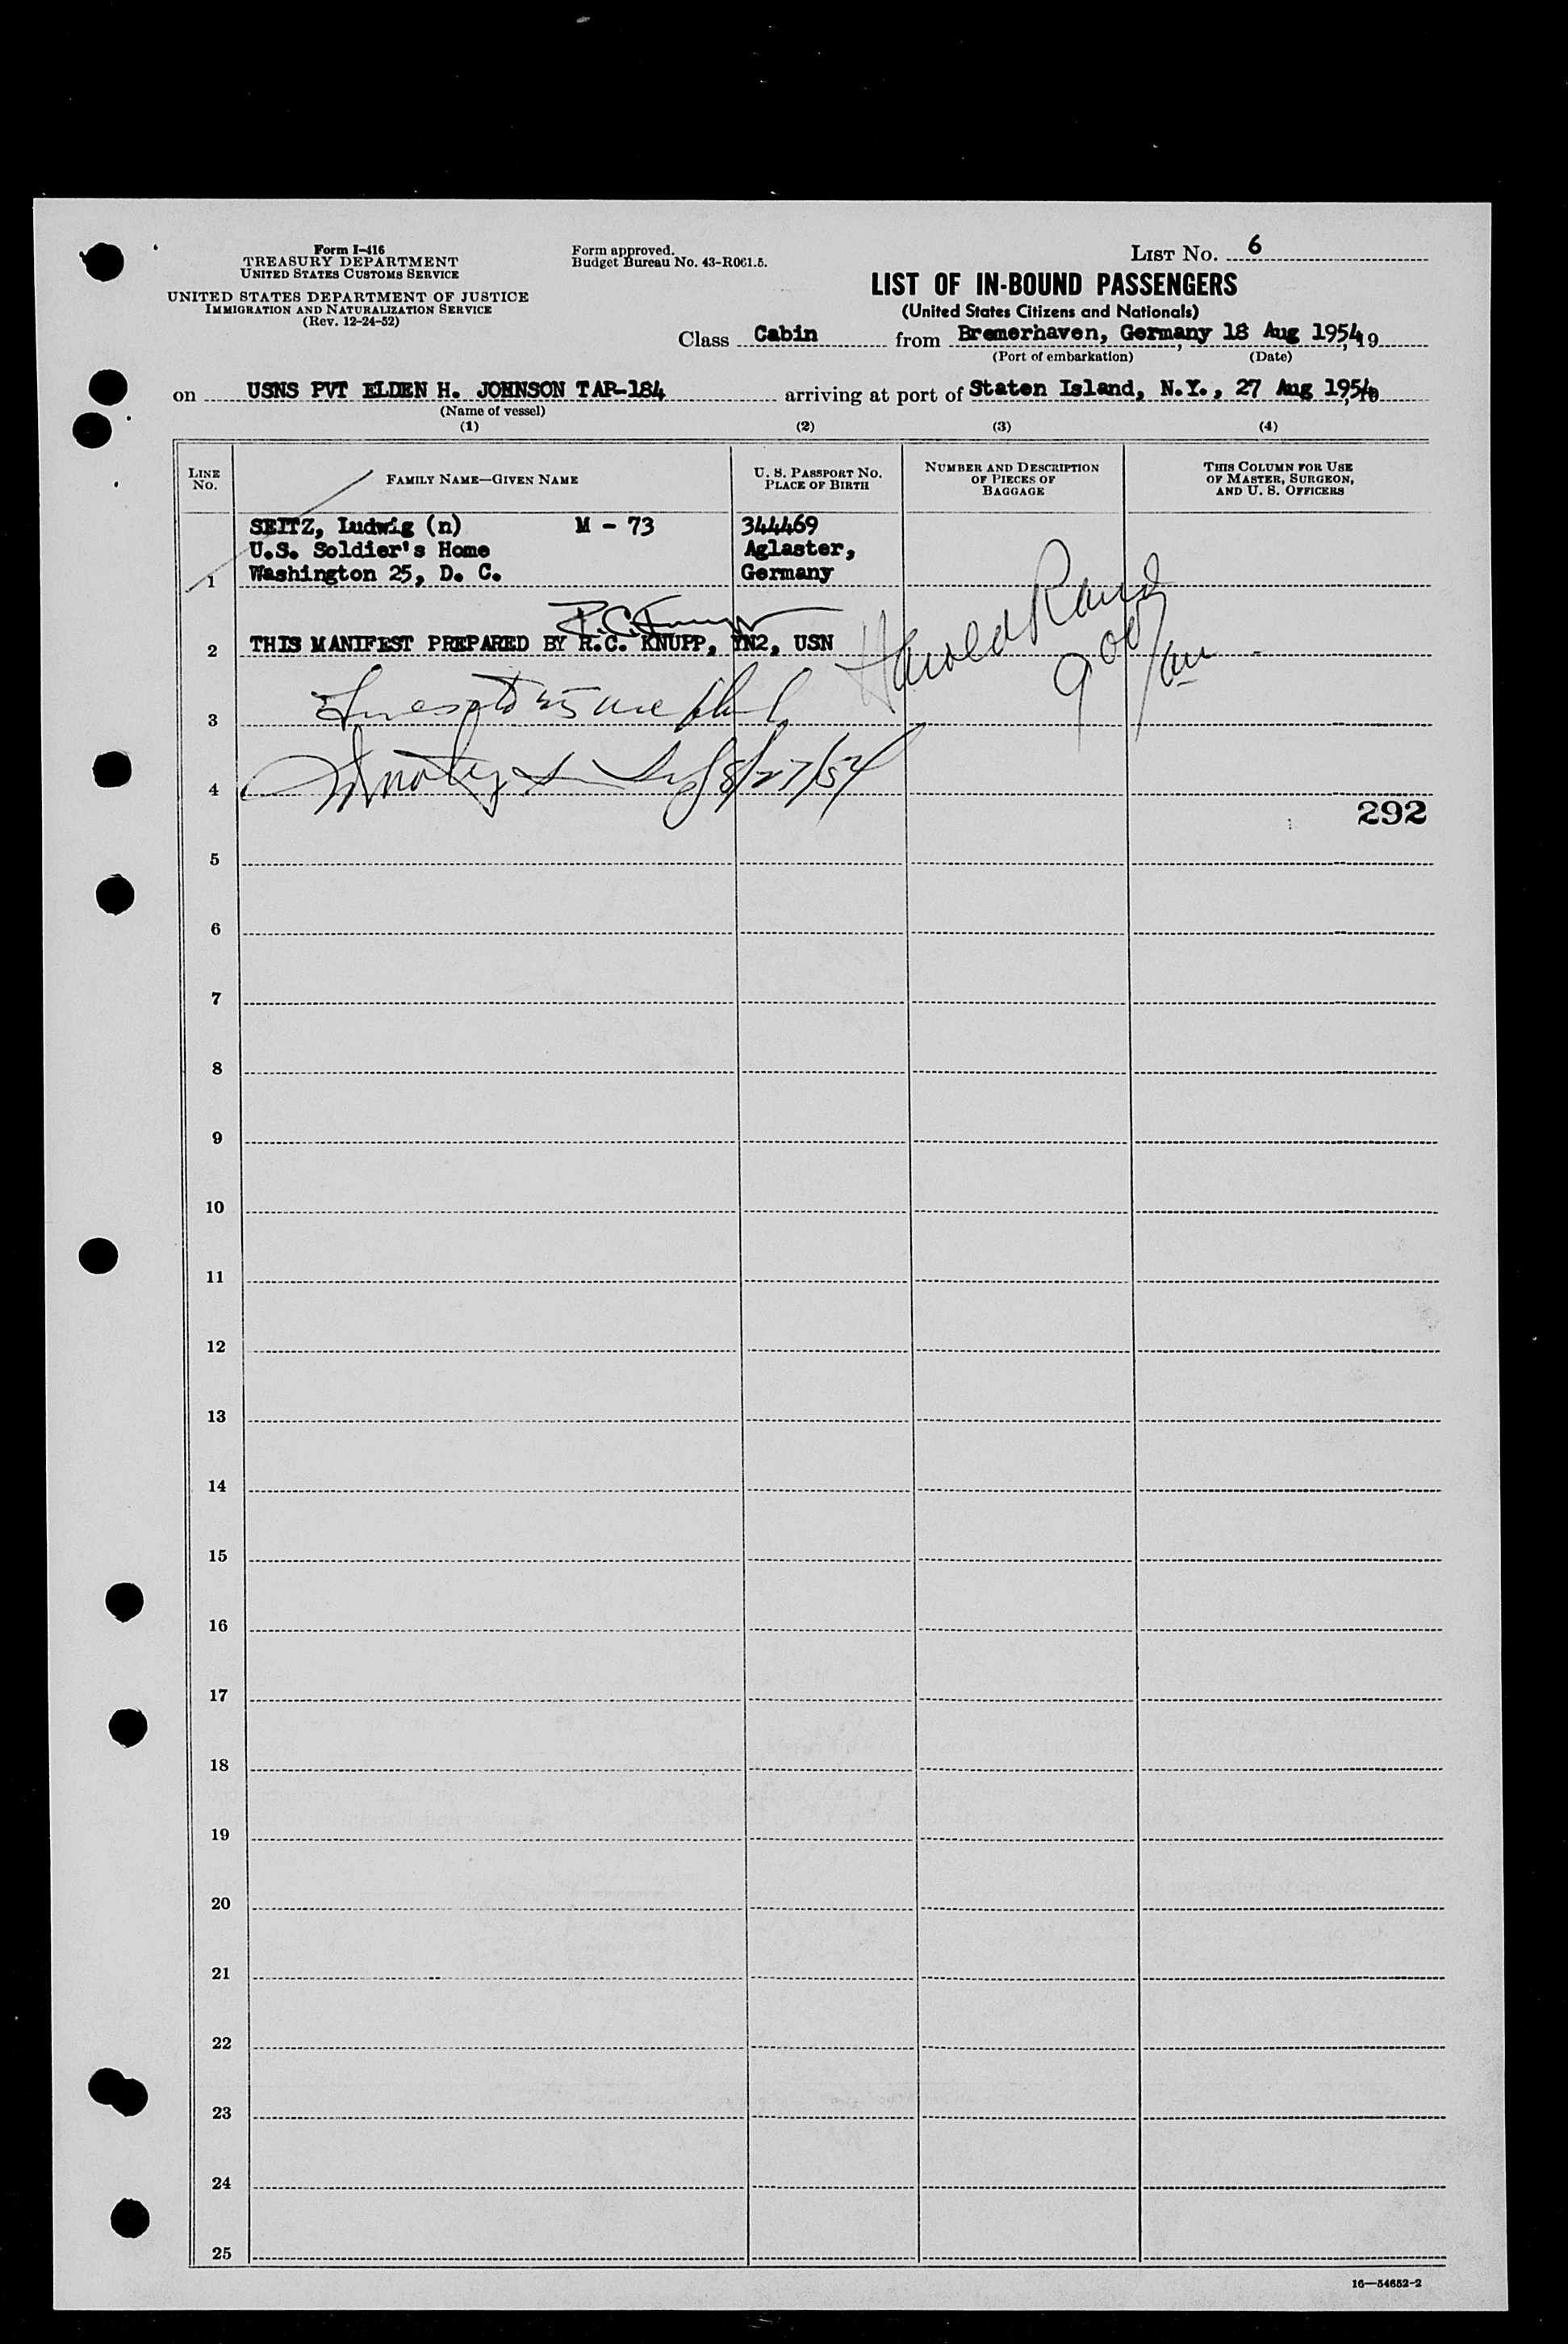 Form I-416
TREASURY DEPARTMENT
UNITED STATES CUSTOMS SERVICE
UNITED STATES DEPARTMENT OF JUSTICE
IMMIGRATION AND NATURALIZATION SERVICE
(Rev. 12-24-52)
Form approved.
Budget Bureau No. 43-R061.5.
LIST NO. 6
LIST OF IN-BOUND PASSENGERS
(United States Citizens and Nationals)
Class Cabin from Bremerhaven, Germany 18 Aug 1954, 19
(Port of embarkation) (Date)
on USNS PVT ELDEN H. JOHNSON TAP-184 arriving at port of Staten Island, N.Y., 27 Aug 1954
(Name of vessel)
(1) (2) (3) (4)
LINE NO. FAMILY NAME—GIVEN NAME U. S. PASSPORT NO. PLACE OF BIRTH NUMBER AND DESCRIPTION OF PIECES OF BAGGAGE THIS COLUMN FOR USE OF MASTER, SURGEON, AND U. S. OFFICERS
SEITZ, Ludwig (n) M - 73 344469
U.S. Soldier's Home Aglaster,
1 Washington 25, D. C. Germany
Harold Rand
900/am
2 THIS MANIFEST PREPARED BY R.C. KNUPP, YN2, USN
3
4 8/27/54
292
5
6
7
8
9
10
11
12
13
14
15
16
17
18
19
20
21
22
23
24
25
16—54652-2